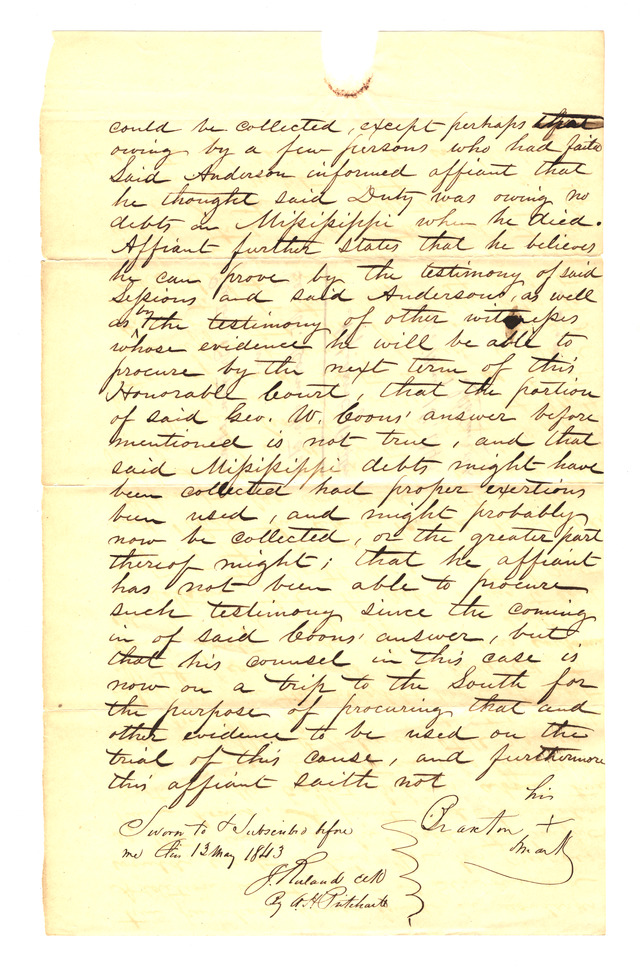 could be collected, except perhaps that
owing by a few persons who had failed
Said Anderson informed affiant that
he thought said Duty was owing no
debts in Missisippi when he died.
Affiant further states that he believes
he can prove by the testimony of said
Sessions and said Anderson, as well
as by the testimony of other witnesses
whose evidence he will be able to
procure by the next term of this
Honorable Court, that the portion
of said Geo. W. Coons' answer before
mentioned is not true, and that
said Missisippi debts might have
been collected had proper exertions
been used, and might probably
now be collected, or the greater part
thereof might; that he affiant
has not been able to procure
such testimony since the coming
in of said Coons' answer, but
that his counsel in this case is
now on a trip to the South for
the purpose of procuring that and
other evidence to be used on the
trial of this cause, and furthermore
this affiant saith not
his
Preston +
mark
Sworn to & Subscribed before
me this 13 May 1843
J. Ruland clk
By A. H. Pritchartt